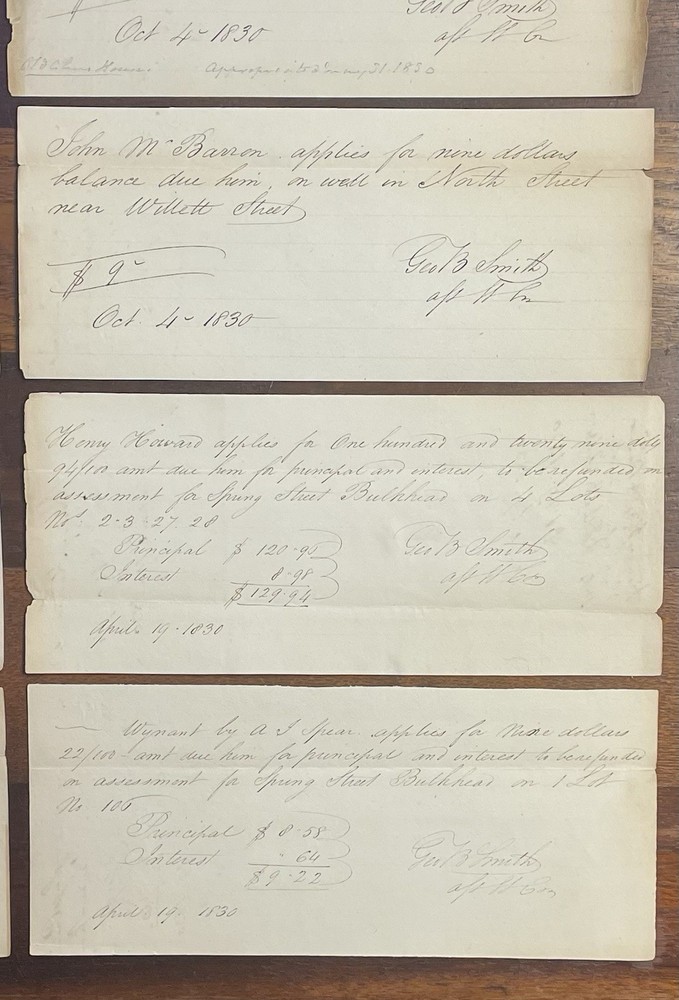 Geo B Smith
Oct 4 - 1830
asst St Cr
Alms House.
1830
John McBarron applies for nine dollars
balance due him, on well in North Street
near Willett Street
$ 9 -
Geo B Smith
asst St Cr
Oct. 4 - 1830
Henry Howard applies for One hundred and twenty nine dolls
94/100 amt due him for principal and interest, to be refunded on
assessment for Spring Street Bulkhead on 4 Lots
Nos. 2-3-27-28
Principal $ 120.96
Geo B Smith
Interest 8.98
asst St Cr
$ 129.94
April 19 - 1830
Wynant by A J Spear applies for Nine dollars
22/100 - amt due him for principal and interest to be refunded
on assessment for Spring Street Bulkhead on 1 Lot
No 106
Principal $ 8.58
Interest " 64
Geo B Smith
$ 9.22
asst St Cr
April 19 1830